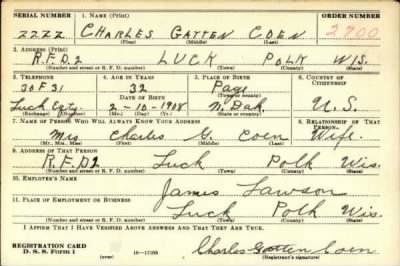 SERIAL NUMBER 1. NAME (Print) ORDER NUMBER
2222 CHARLES GATTEN COEN 2700
(First) (Middle) (Last)
2. ADDRESS (Print)
R.F.D.2 LUCK POLK WIS.
(Number and street or R. F. D. number) (Town) (County) (State)
3. TELEPHONE 4. AGE IN YEARS 5. PLACE OF BIRTH 6. COUNTRY OF CITIZENSHIP
30F31 32 Page
DATE OF BIRTH (Town or county)
Luck 2-10-1908 N. Dak. U.S.
(Exchange) (Number) (Mo.) (Day) (Yr.) (State or country)
7. NAME OF PERSON WHO WILL ALWAYS KNOW YOUR ADDRESS 8. RELATIONSHIP OF THAT PERSON
Mrs Charles G. Coen Wife.
(Mr., Mrs., Miss) (First) (Middle) (Last)
9. ADDRESS OF THAT PERSON
R.F.D2 Luck Polk Wis.
(Number and street or R. F. D. number) (Town) (County) (State)
10. EMPLOYER'S NAME
James Lawson
11. PLACE OF EMPLOYMENT OR BUSINESS
Luck Polk Wis.
(Number and street or R. F. D. number) (Town) (County) (State)
I AFFIRM THAT I HAVE VERIFIED ABOVE ANSWERS AND THAT THEY ARE TRUE.
REGISTRATION CARD
D. S. S. Form 1 (over) 16—17105 Charles Gatten Coen
(Registrant's signature)